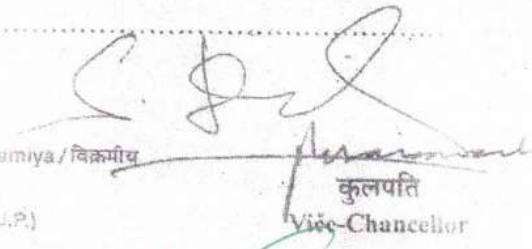 amiya / विक्रमीय
कुलपति
J.P.) Vice-Chancellor